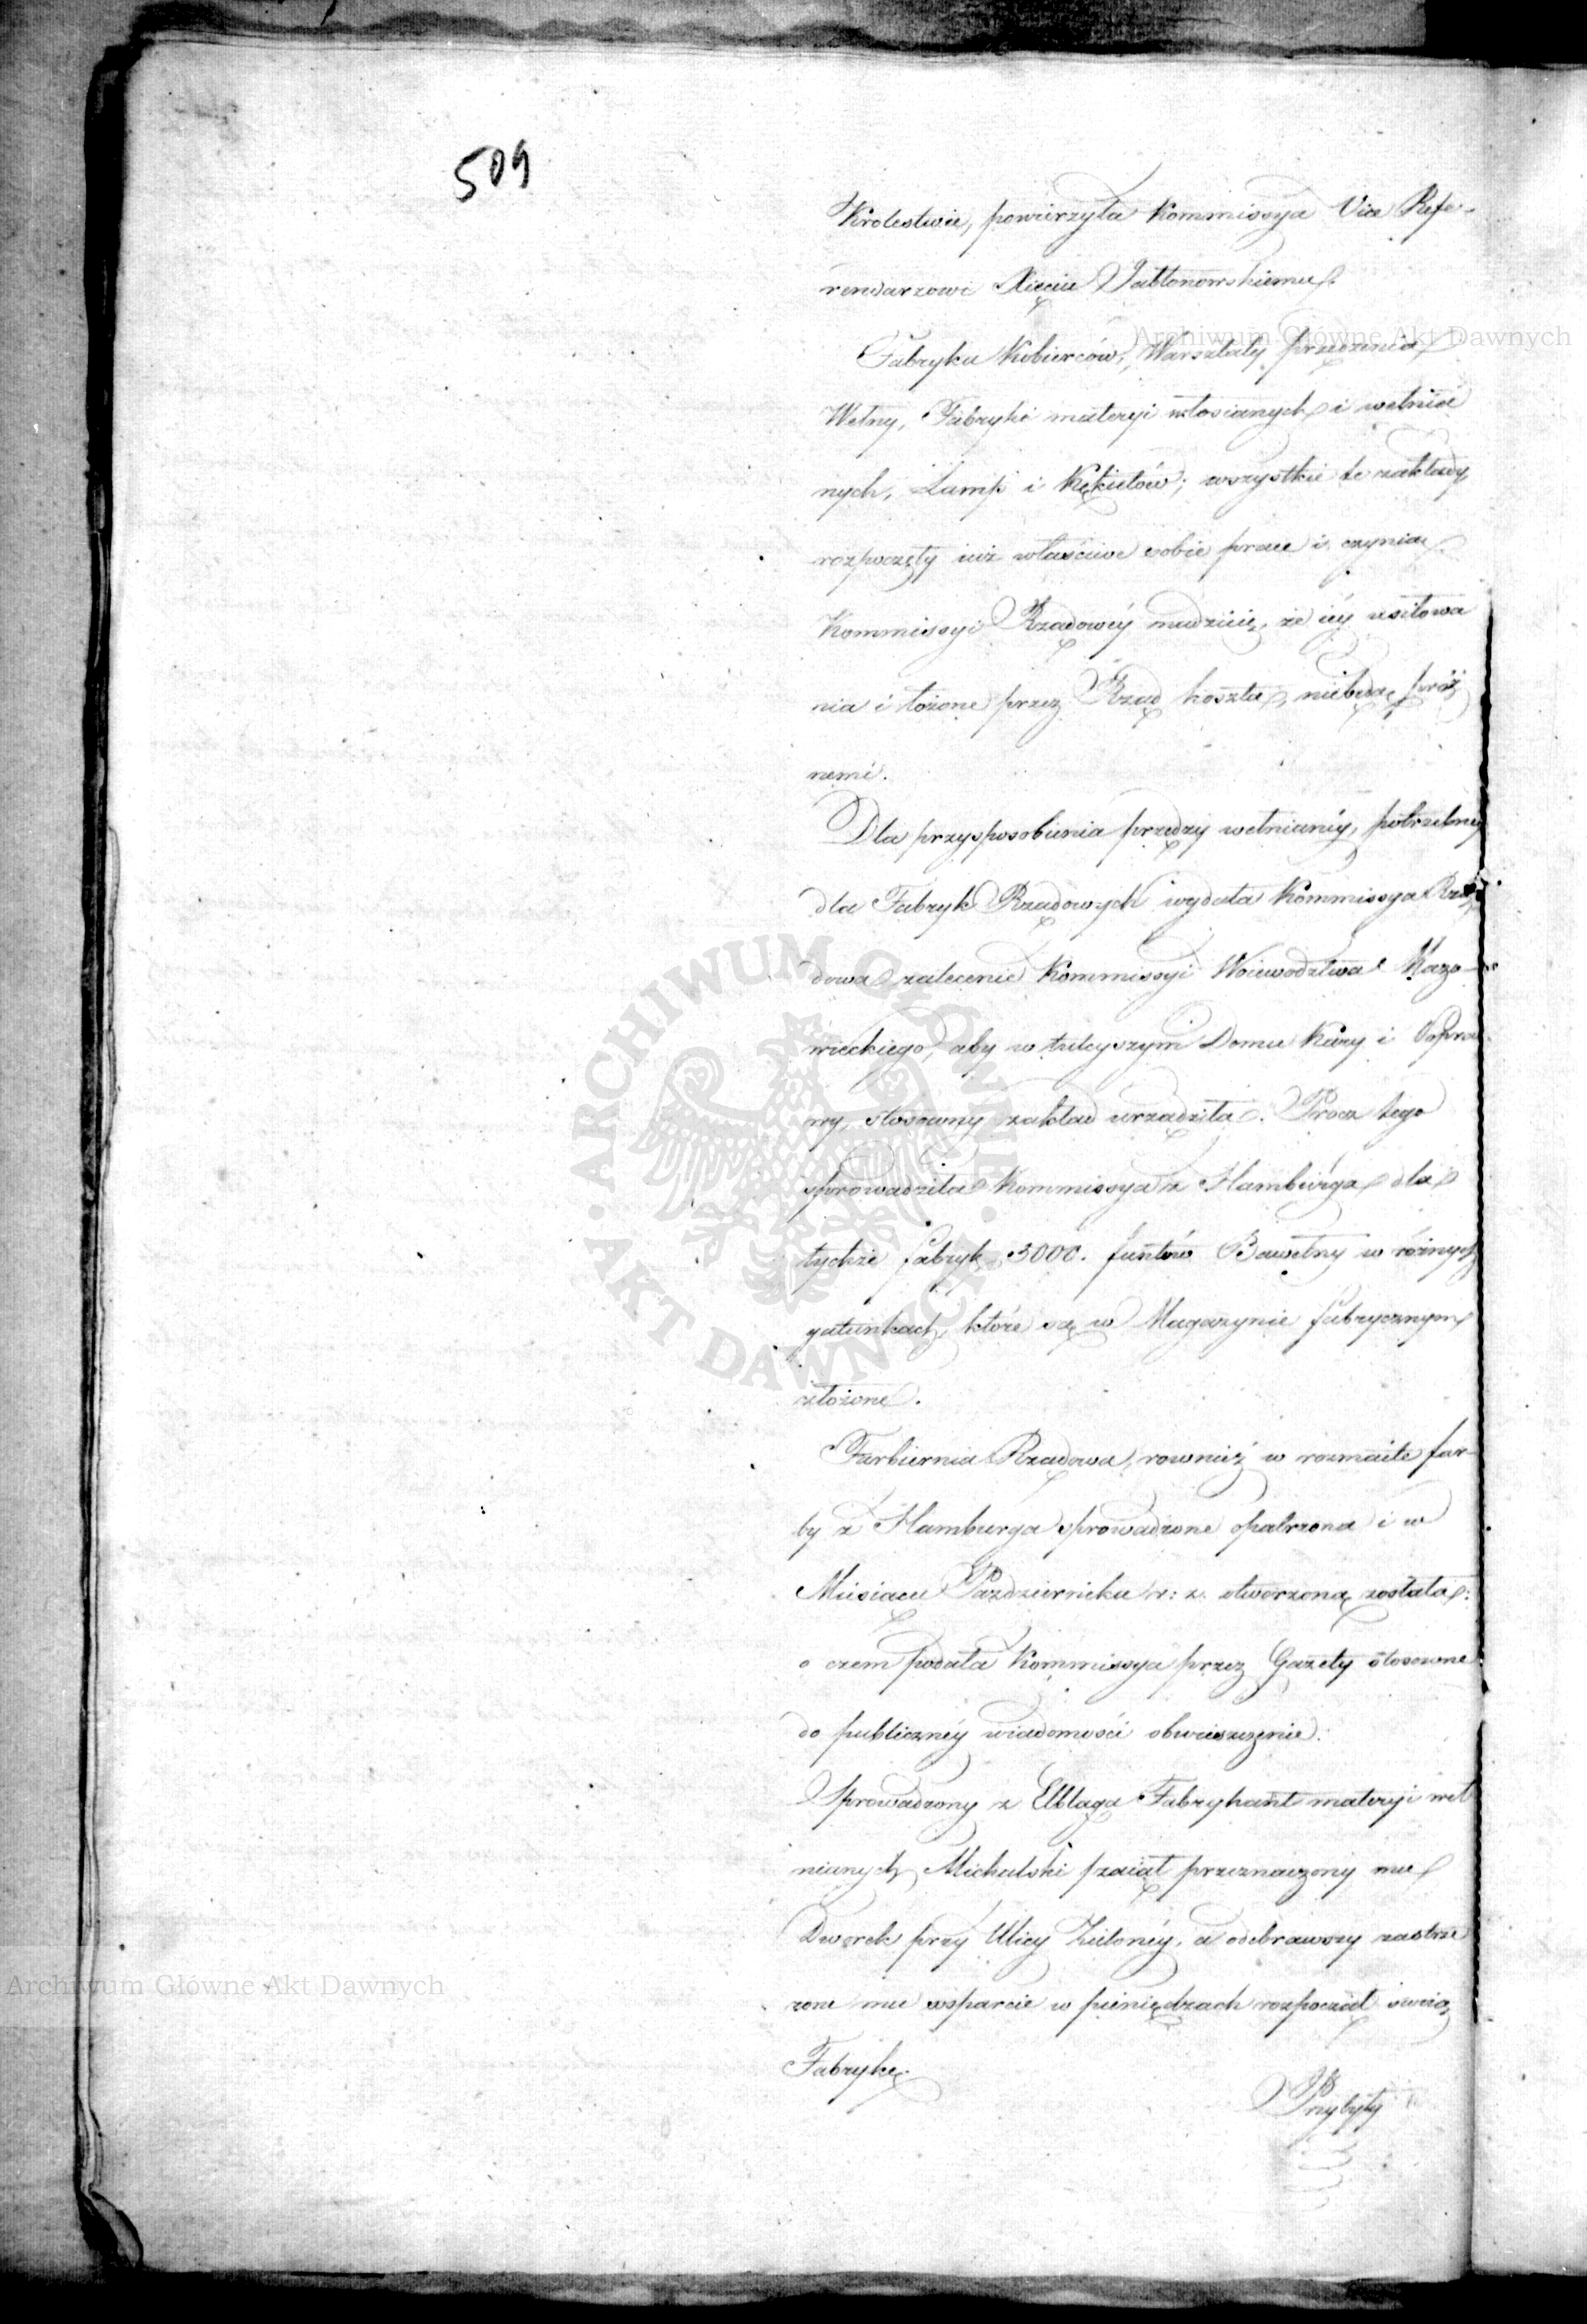 509
Krolestwie, powierzyła Kommissya Vice Refe-
rendarzowi Xięciu Jabłonowskiemu.
Fabryka Kobierców, Warsztaty przędzenia
Wełny, Fabryki materyi włosianych i wełnia
nych, Lamp i Kękietów; wszystkie te zakłady
rozpoczęły iuż właściwe sobie prace i czynią
Kommissyi Rządowéy nadzieię, że iéy usiłowa
nia i łożone przez Rząd koszta, niebędą próż
nemi.
Dla przysposobienia przędzy wełnianéy, potrzebnéy
dla Fabryk Rządowych wydała Kommissya Rzą
dowa zalecenie Kommissyi Woiewodztwa Mazo-
wieckiego, aby w tuteyszym Domu Kary i Popra
wy, stosowny zakład urządziła. Procz tego
sprowadziła Kommissya z Hamburga dla
tychże fabryk 3000. funtów Bawełny w różnych
gatunkach, które są w Magazynie fabrycznym
złożone.
Farbiernia Rządowa, rownież w rozmaite far-
by z Hamburga sprowadzone opatrzona i w
Miesiącu Październiku r: z. otworzoną została:
o czem podała Kommissya przez Gazety stosowne
do publicznéy wiadomości obwieszczenie.
Sprowadzony z Elbląga Fabrykant materyi weł
nianych Michalski zaiął przeznaczony mu
Dworek przy Ulicy Zieloney, a odebrawszy zastrze
żone mu wsparcie w pieniędzach rozpoczął swoią
Fabrykę.
Przybyły
Archiwum Główne Akt Dawnych
ARCHIWUM GŁÓWNE · AKT DAWNYCH ·
Archiwum Główne Akt Dawnych